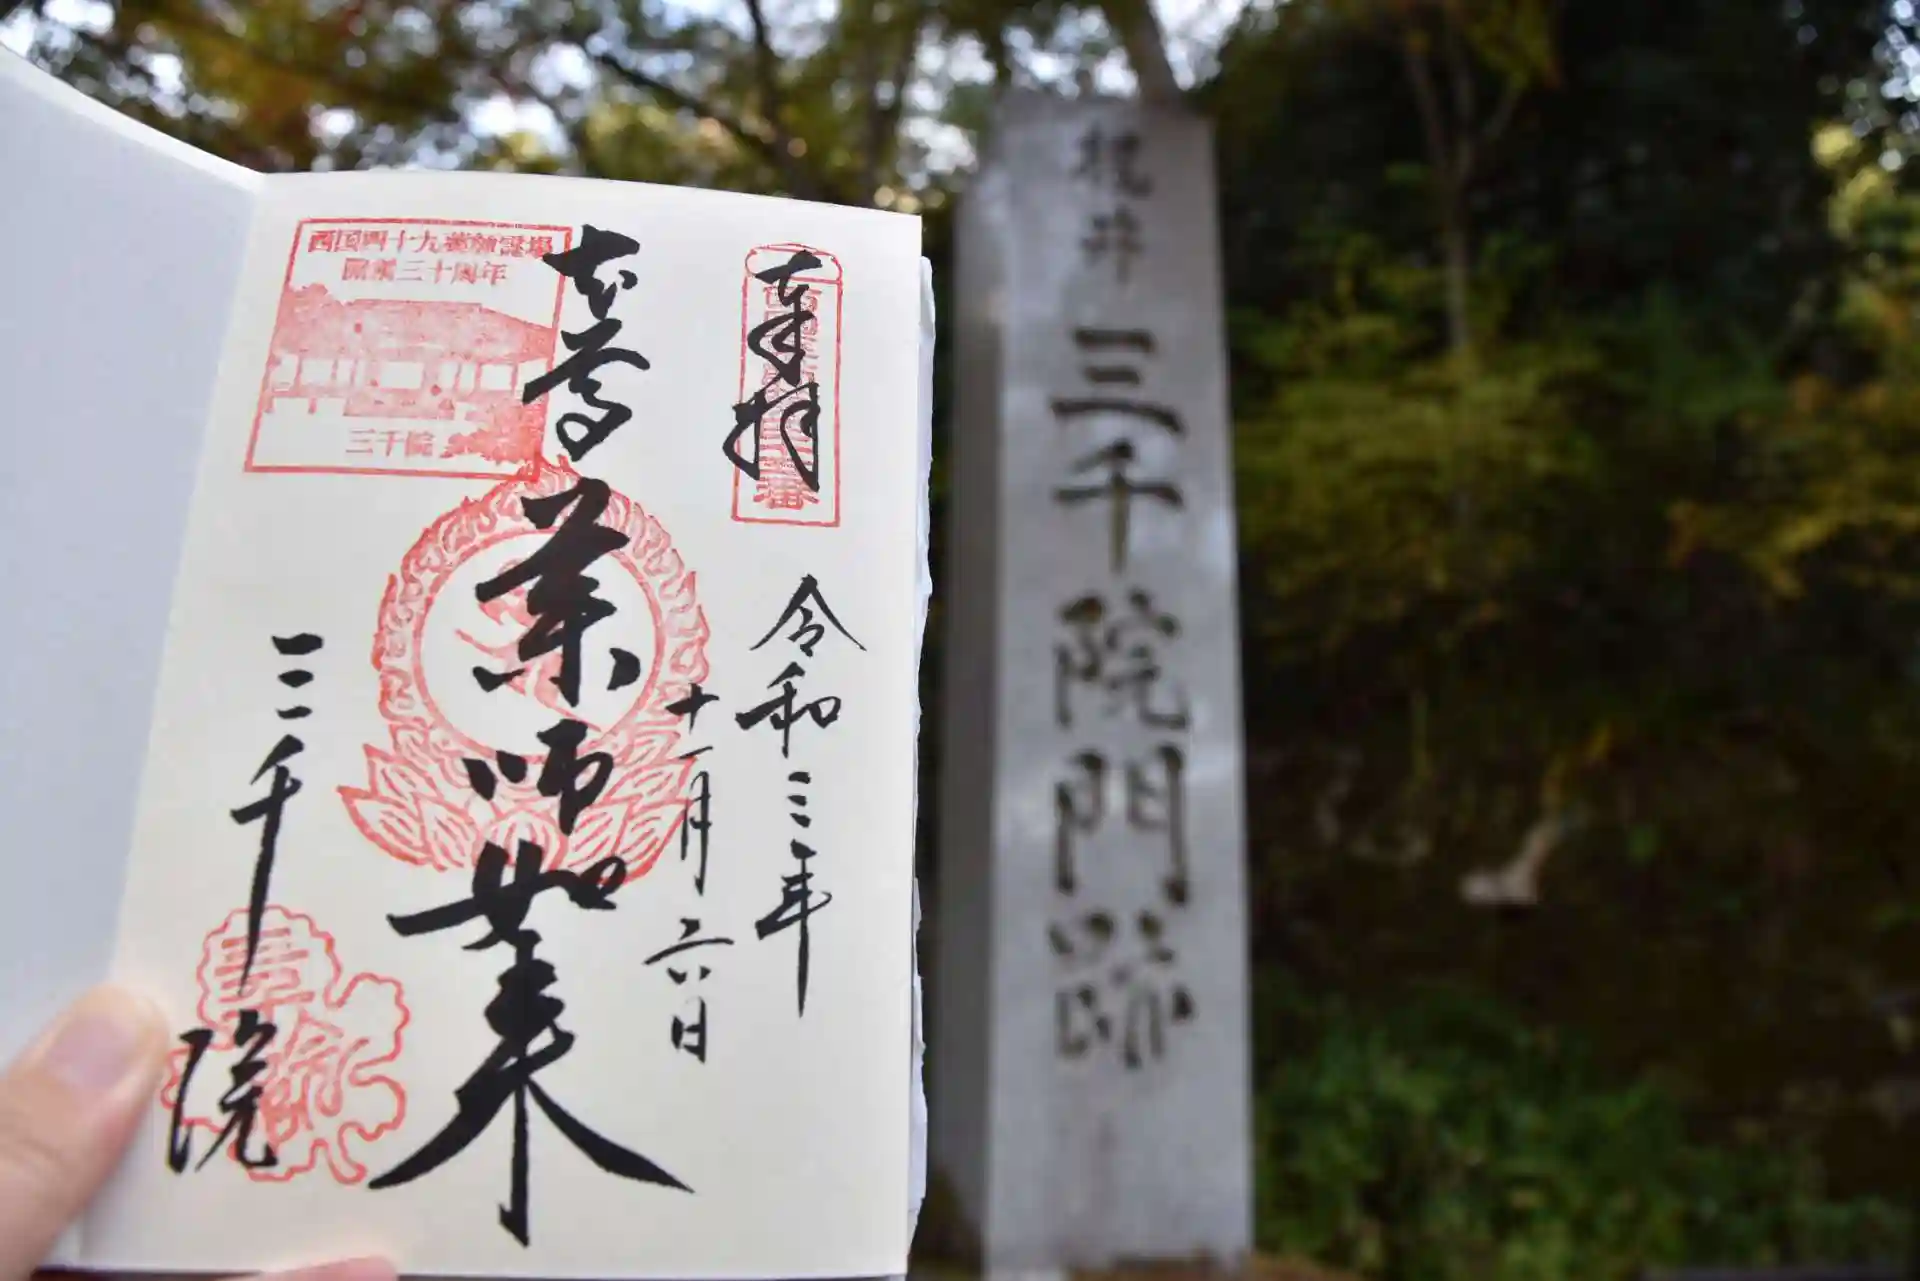 奉拝
令和三年
十一月六日
本尊
薬師如来
三千院
西国四十九薬師霊場
開創三十周年
三千院
梶井
三千院門跡